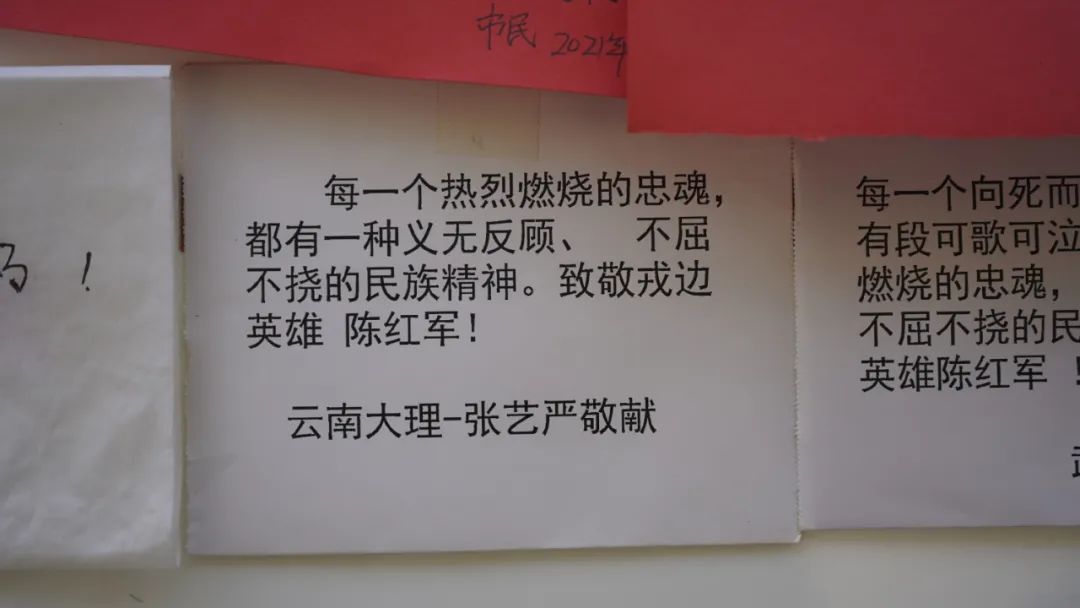 市民 2021年
！
每一个热烈燃烧的忠魂，
都有一种义无反顾、 不屈
不挠的民族精神。致敬戎边
英雄 陈红军！
云南大理-张艺严敬献
每一个向死而
有段可歌可泣
燃烧的忠魂，
不屈不挠的民
英雄陈红军 ！